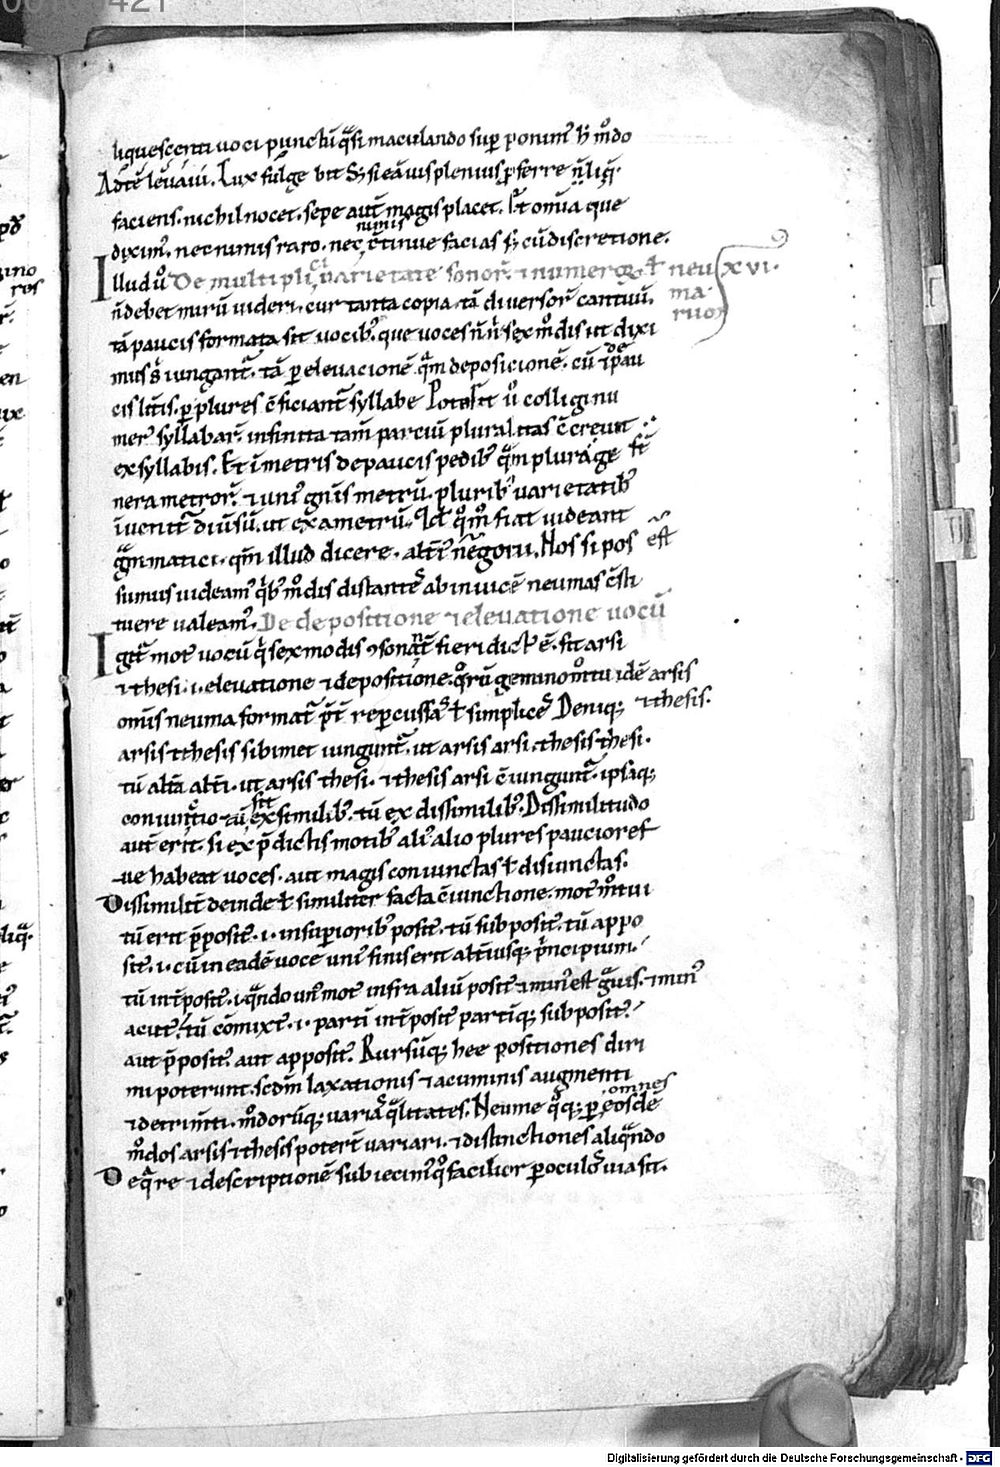 liquescenti uoci punctū q̄si maculando suꝑ ponim' h̄ m̊do
Ad te leuaui. Lux fulge bit S; si eā uis plenius ꝓferre n̄ liq̄
faciens. nichil nocet. sepe aut̄ magis placet. Et om̄ia que
nimis
dixim'. nec nimis raro. nec c̄tinue facias s; cū discretione.
Illud ů De multiplici uarietate sonoꝝ & numero ł neu xvi.
ma
ruō
n̄ debet mirū uideri. cur tanta copia. tā diuersoꝝ cantuū.
tā paucis formata sit vocib'. que uoces n̄ n̄ sex m̊dis ut dixi
mus s̄ iungant̄. tā ꝑ eleuacionē. q̄m deposicionē. cū & de pau
cis lr̄is. ꝑ plures c̄ficiant̄ syllabe Potest ů colligi nu
mer' syllabaꝝ. infinita tam̄ parciū pluralitas c̄creuit
ex syllabis. Et ī metris de paucis pedib' q̄m plura ge st̄
nera metroꝝ. & uni' gn̄is metrū. plurib' uarietatib'
īuenit̄ diūsū. ut exametrū. Id q̊m̊ fiat uideant
ḡm̄matici. q̄m illud dicere. alt̄i' negotii. Nos si pos est
sumus uideam' q̄b' m̊dis distantes ab inuicē neumas c̄sti
tuere ualeam'. De depositione & eleuatione uocū
Igit̄ mot' uocū q̄ sex modis ꝯsonant̄ fieri dict' ē. fit arsi
& thesi. i. eleuatione & depositione. q̊rū gemino motu idē arsis
om̄is neuma format̄ p̄t repercussas ł simplices Deniq; & thesis.
arsis & thesis sibimet iungunt̄. ut arsis arsi. thesis thesi.
tū alt̄a alt̄i. ut arsis thesi. & thesis arsi c̄iungunt̄. ipsaq;
sit
coniunctio tū ex similib'. tū ex dissimilib'. Dissimilitudo
aut̄ erit. si ex p̄dictis motib' ali' alio plures paucioreſ
ue habeat uoces. aut magis coniunctas ł disiunctas.
Dissimilit̄ deinde ł similiter facta c̄iunctione. mot' motui
tū erit p̄posit'. i. in superiorib' posit'. tū subposit'. tū appo
sit'. i. cū in eadē uoce uni' finis erit alt̄iusq; p̄ncipium.
tū int̄posit'. i. q̄ndo un' mot' infra aliū posit' & min' est grauis. & min'
acut'. tū cōmixt'. i. partī int̄posit' partīq; subposit'.
aut p̄posit'. aut apposit'. Rursūq; hee positiones diri
mi poterunt. scdm̄ laxationis & acuminis augmenti
omnes
& detrimti. m̊dorūq; uarias q̄litates. Neume q̊q; ꝑ eosdē
m̊dos arsis & thesis poterit uariari. & distinctiones aliq̄ndo
De qua re & descriptionē subiecim' q̊ facilior ꝑ oculos uia sit.
Digitalisierung gefördert durch die Deutsche Forschungsgemeinschaft - DFG